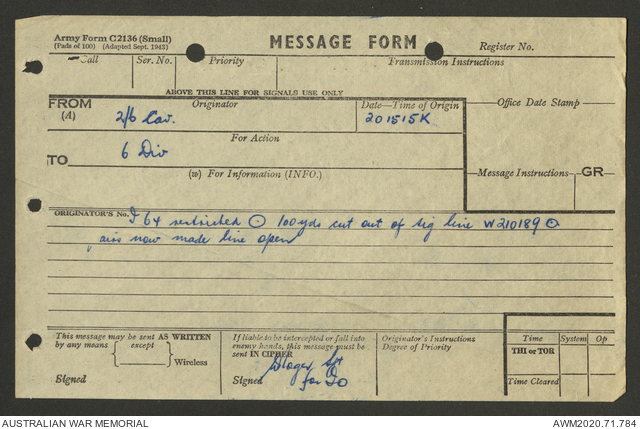 Army Form C2136 (Small)
(Pads of 100) (Adapted Sept. 1943)
MESSAGE FORM
Register No.
Call Ser. No. Priority Transmission Instructions
ABOVE THIS LINE FOR SIGNALS USE ONLY
FROM
(A)
Originator
2/6 Cav.
Date—Time of Origin
201515K
Office Date Stamp
For Action
TO
6 Div
(W) For Information (INFO.)
Message Instructions GR
ORIGINATOR'S No. I 64 restricted ⊙ 100yds cut out of sig line W210189 ⊙
now made line open
This message may be sent AS WRITTEN
by any means except
Wireless
Signed
If liable to be intercepted or fall into
enemy hands, this message must be
sent IN CIPHER
Signed
for IO
Originator's Instructions
Degree of Priority
Time System Op
THI or TOR
Time Cleared
AUSTRALIAN WAR MEMORIAL
AWM2020.71.784